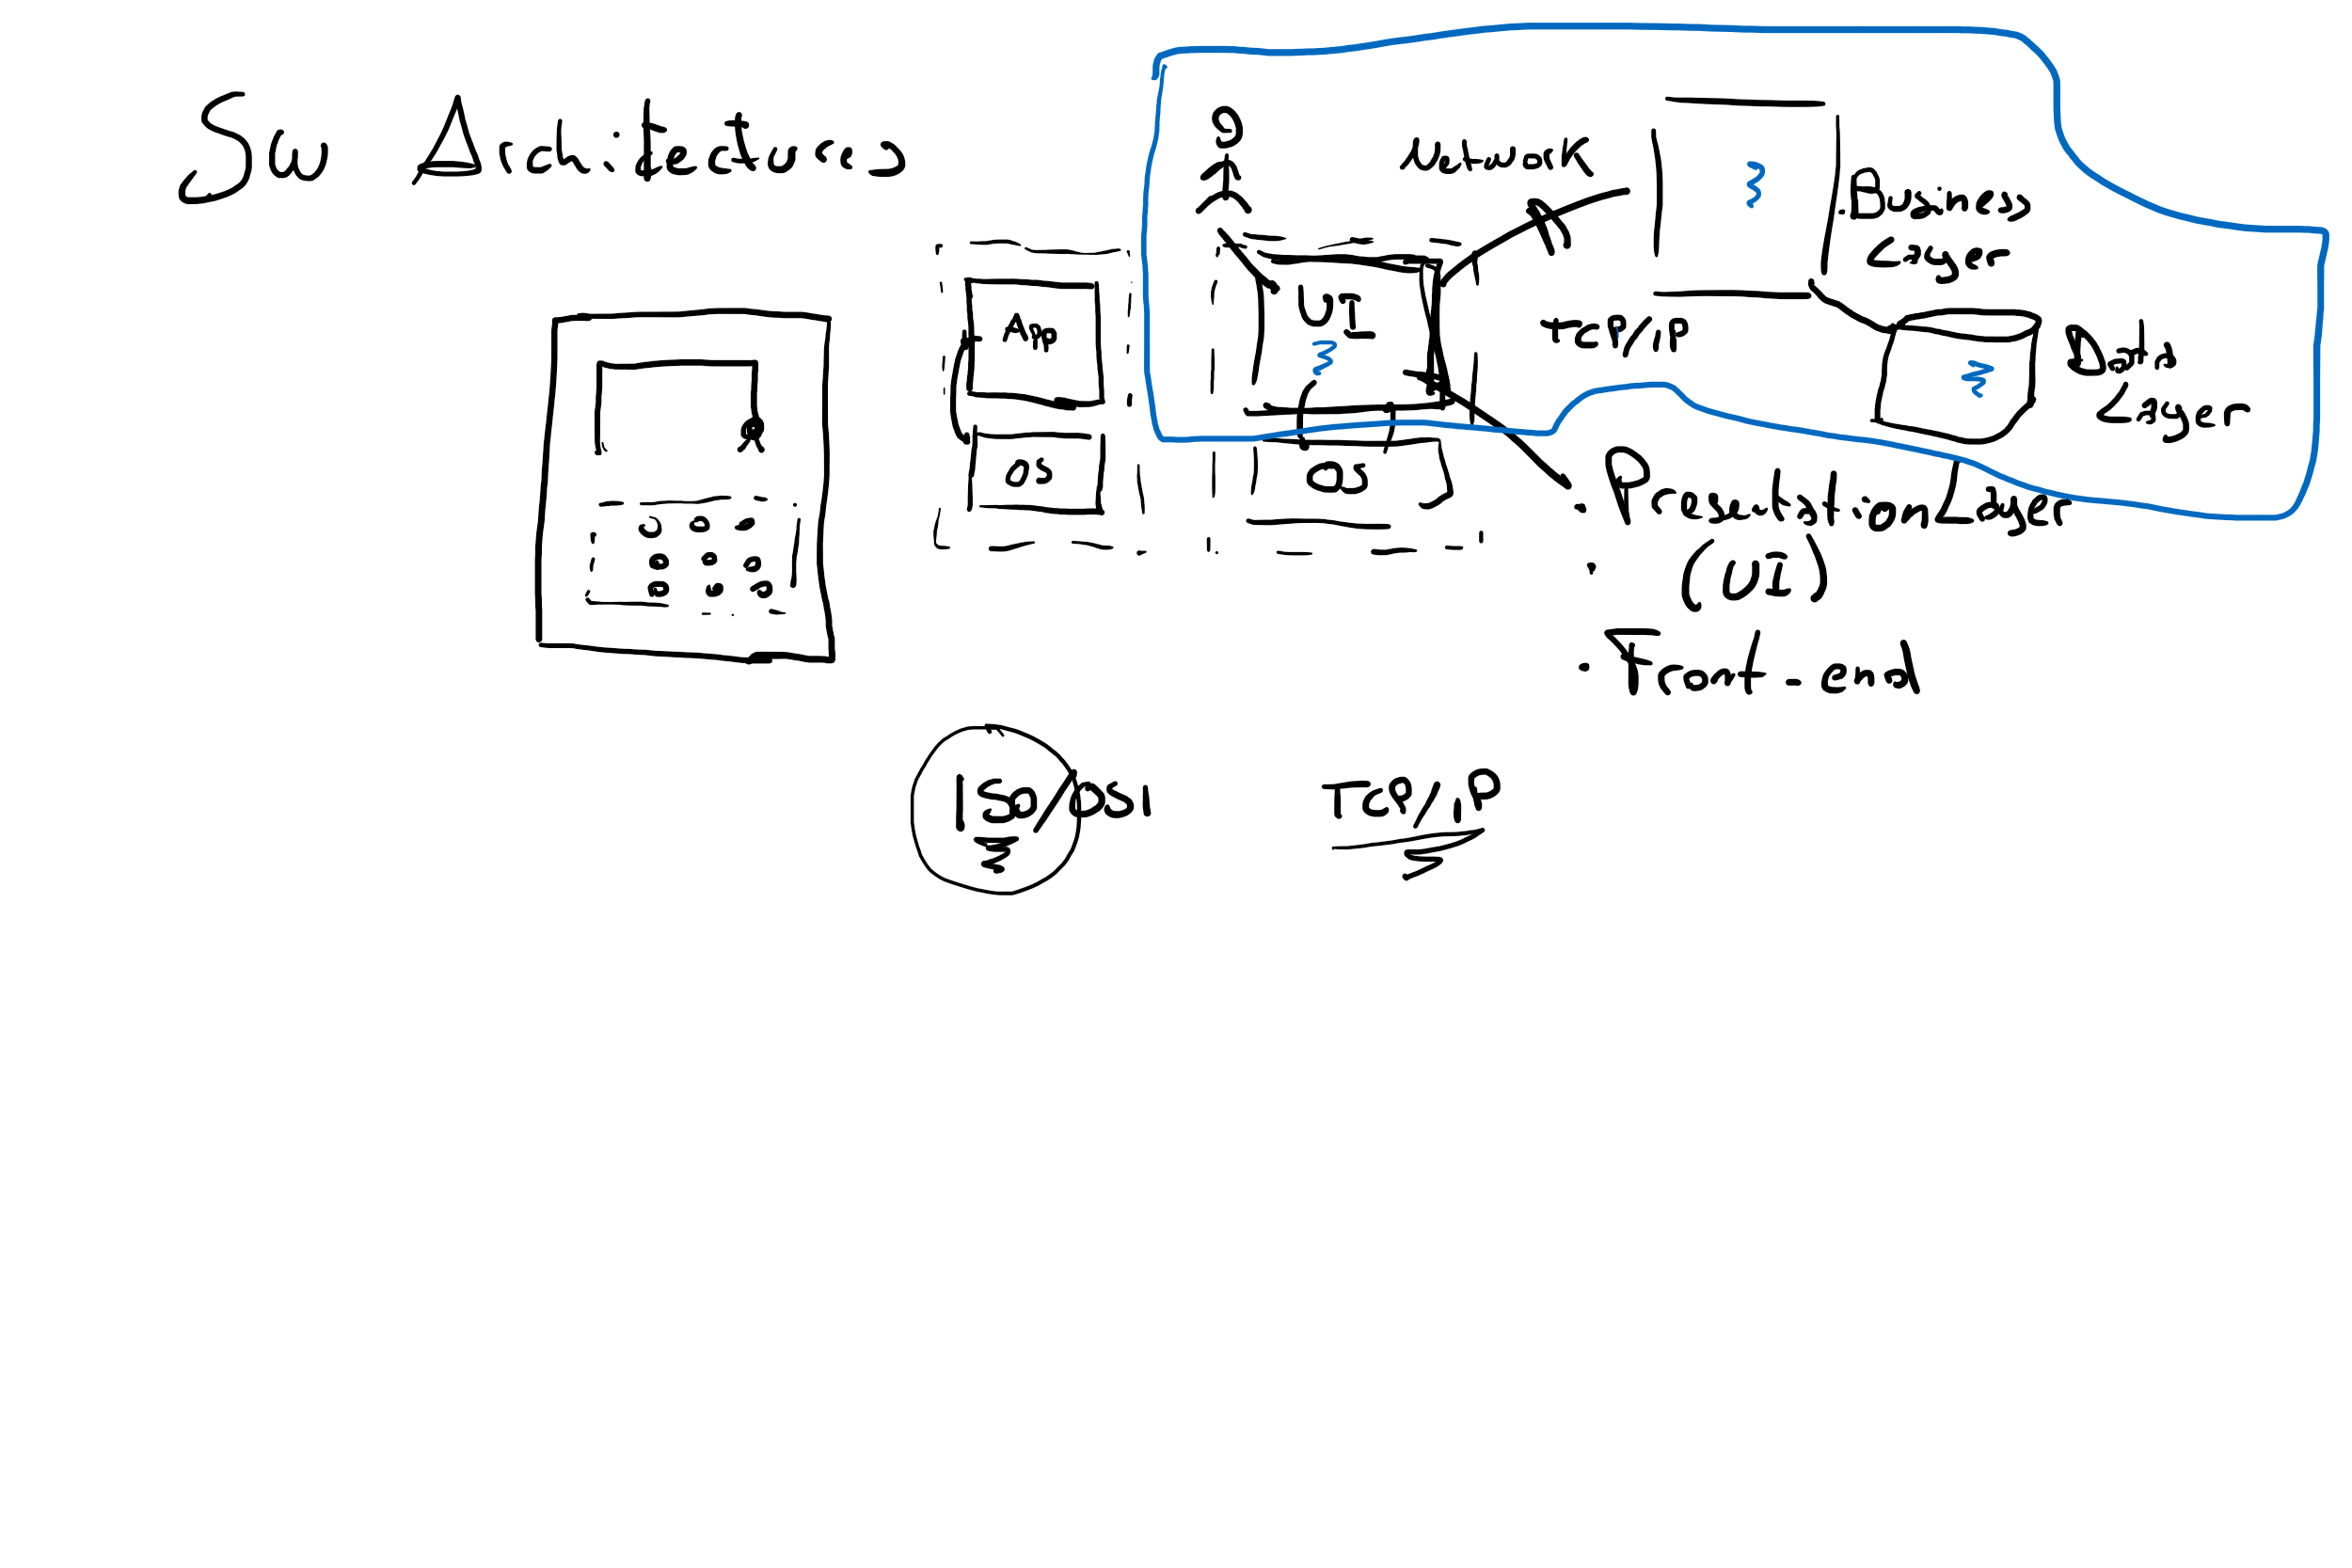 SW Architectures
Network
Business
Layer
UI
TCP/IP
App
Data
Layer
OS
OS
· Presentation Layer
· (UI)
· Front-end
ISO/OSI
TCP/IP